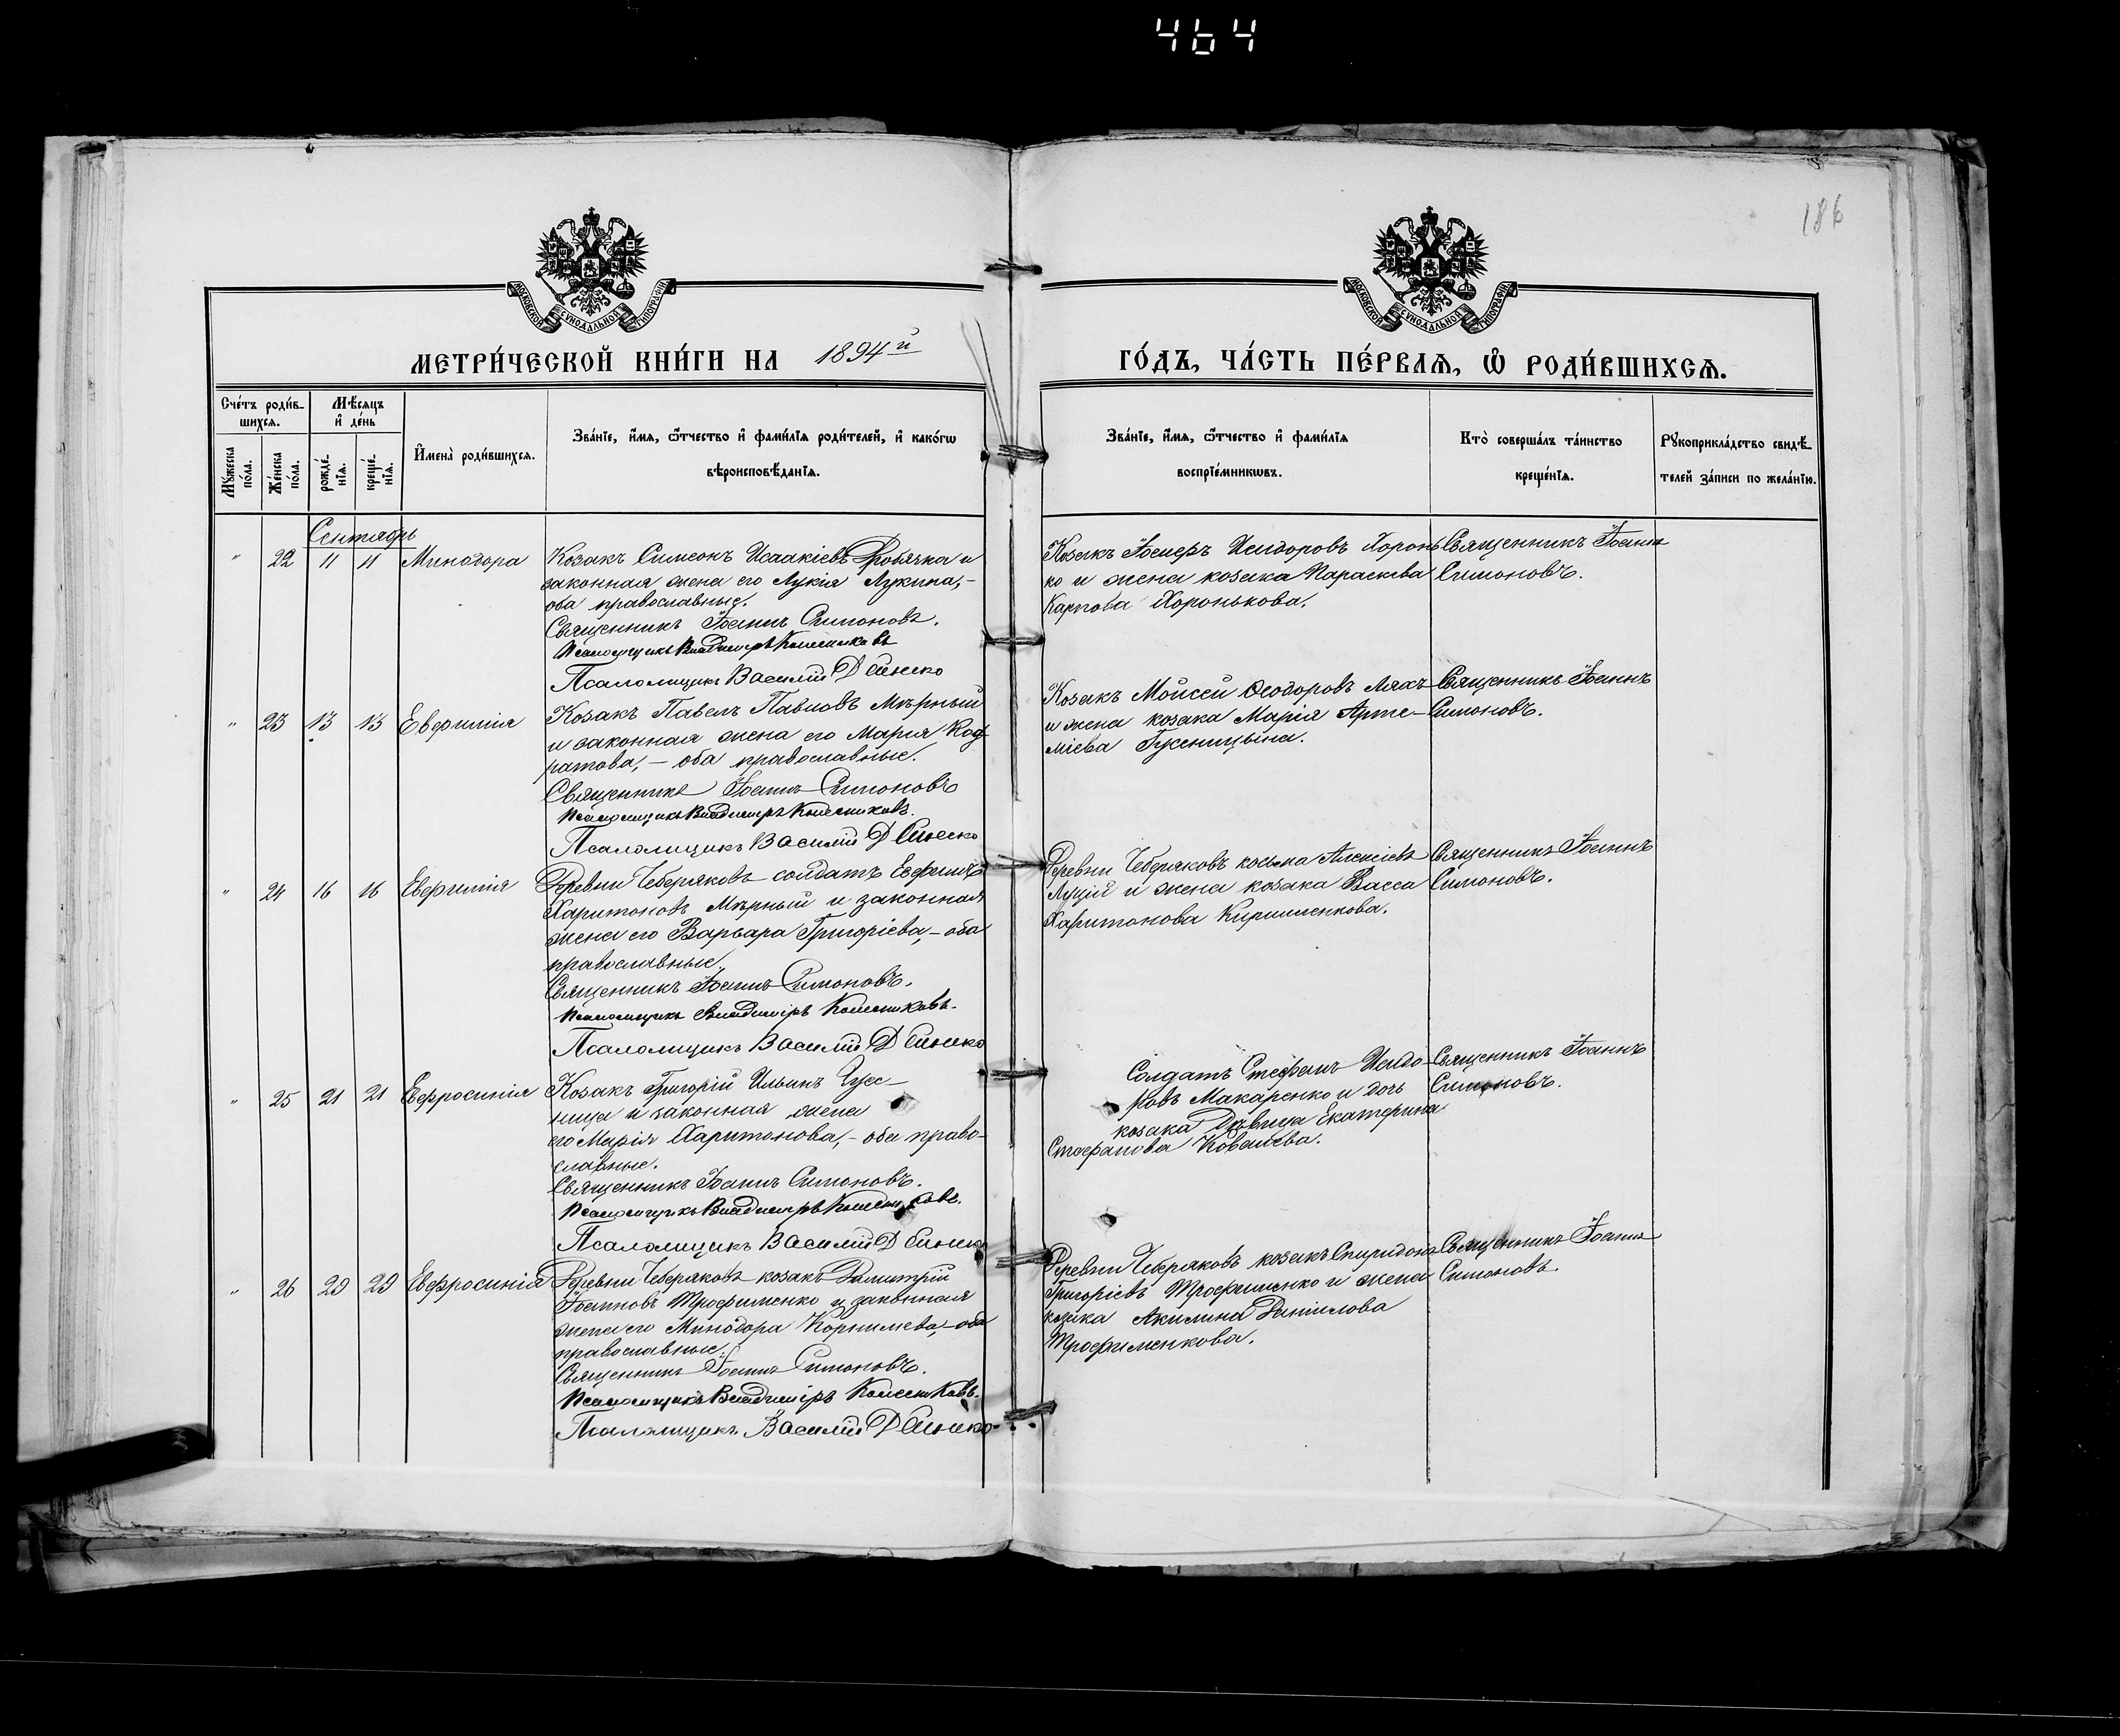 464
186
МОСКОВСКОЙ СѴНОДАЛЬНОЙ ТИПОГРАФІИ
МОСКОВСКОЙ СѴНОДАЛЬНОЙ ТИПОГРАФІИ
МЕТРИ́ЧЕСКОЙ КНИ́ГИ НА 1894й
ГО́ДЪ, ЧА́СТЬ ПЕ́РВАѦ, Ѡ҆ РОДИ́ВШИХСѦ.
Сче́тъ роди́в-
шихсѧ.
Мѣ́сѧцъ
и҆ де́нь
Мꙋ́жеска
по́ла.
Же́нска
по́ла.
рожде́-
нїѧ.
креще́-
нїѧ.
И҆мена̀ роди́вшихсѧ.
Зва́нїе, и҆́мѧ, ѻ҆́тчество и҆ фами́лїѧ роди́телей, и҆ како́гѡ
вѣроисповѣ́данїѧ.
Зва́нїе, и҆́мѧ, ѻ҆́тчество и҆ фами́лїѧ
воспрїе́мникѡвъ.
Кто̀ соверша́лъ та́инство
креще́нїѧ.
Рꙋкоприкла́дство свидѣ́-
телей за́писи по жела́нїю.
Сентябрь
" 22 11 11 Минодора
Козакъ Симеонъ Исаакіевъ Дробячка и
законная жена его Лукія Лукина,-
оба православные.
Священникъ Іоаннъ Симоновъ.
Псаломщикъ Владиміръ Колесниковъ
Псаломщикъ Василій Дейнеко
Козакъ Исидоровъ Хоронь
ко и жена козака Параскева
Карпова Хоронькова.
Священникъ Іоаннъ
Симоновъ.
" 23 13 13 Евфимія
Козакъ Павелъ Павловъ Мѣрный
и законная жена его Марія Код-
ратова,- оба православные.
Священникъ Іоаннъ Симоновъ
Псаломщикъ Владиміръ Колесниковъ.
Псаломщикъ Василій Дейнеко
Козакъ Мойсей Ѳеодоровъ Ляхъ
и жена козака Марія Арте-
міева Гусеницына.
Священникъ Іоаннъ
Симоновъ.
" 24 16 16 Евфимія
Деревни Чеберяковъ солдатъ Евфимій
Харитоновъ Мѣрный и законная
жена его Варвара Григорієва,- оба
православные.
Священникъ Іоаннъ Симоновъ.
Псаломщикъ Владиміръ Колесниковъ.
Псаломщикъ Василій Дейнеко
Деревни Чеберяковъ Алексіевъ
Луцій и жена козака Васса
Харитонова Кириленкова.
Священникъ Іоаннъ
Симоновъ.
" 25 21 21 Евфросинія
Козакъ Григорій Ильинъ Гусе-
ница и законная жена
его Марія Харитонова,- оба право-
славные.
Священникъ Іоаннъ Симоновъ.
Псаломщикъ Владиміръ Колесниковъ.
Псаломщикъ Василій Дейнеко
Солдатъ Стефанъ Исидо-
ровъ Макаренко и дочь
козака Дѣвица Екатерина
Стефанова Ковалева.
Священникъ Іоаннъ
Симоновъ.
" 26 29 29 Евфросинія
Деревни Чеберяковъ козакъ Димитрій
Іоанновъ Трофименко и законная
жена его Минодора Корнилева,- оба
православные.
Священникъ Іоаннъ Симоновъ.
Псаломщикъ Владиміръ Колесниковъ.
Псаломщикъ Василій Дейнеко
Деревни Чеберяковъ козакъ Спиридонъ
Григорієвъ Трофименко и жена
козака Акилина Даніилова
Трофименкова.
Священникъ Іоаннъ
Симоновъ.